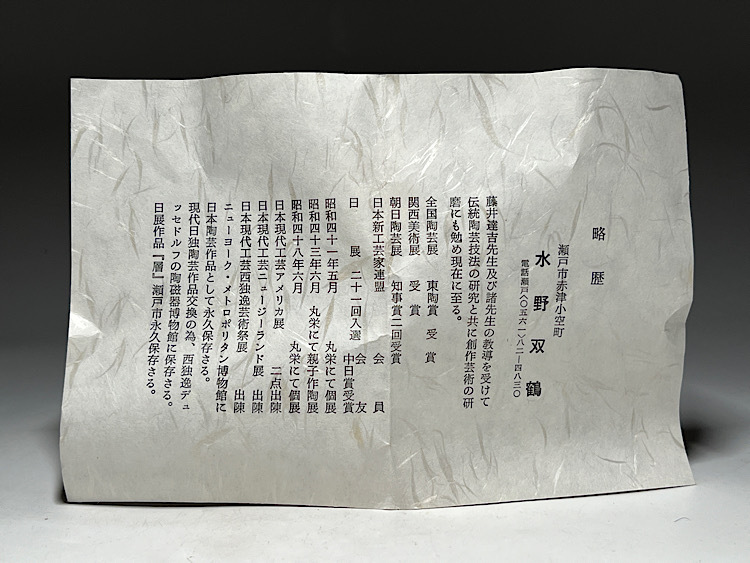 略歴
瀬戸市赤津小空町
水野双鶴
電話瀬戸〇五六一-八二-四八三〇
藤井達吉先生及び諸先生の教導を受けて
伝統陶芸技法の研究と共に創作芸術の研
磨にも勉め現在に至る。
全国陶芸展 東陶賞 受賞
関西美術展 受賞
朝日陶芸展 知事賞二回受賞
日本新工芸家連盟 会員
日展 二十一回入選 会友
中日賞受賞
昭和四十一年五月 丸栄にて個展
昭和四十三年六月 丸栄にて親子作陶展
昭和四十八年六月 丸栄にて個展
日本現代工芸アメリカ展 二点出陳
日本現代工芸ニュージーランド展 出陳
日本現代工芸西独逸芸術祭展 出陳
ニューヨーク・メトロポリタン博物館に
日本陶芸作品として永久保存さる。
現代日独陶芸作品交換の為、西独逸デュ
ッセドルフの陶磁器博物館に保存さる。
日展作品『層』瀬戸市永久保存さる。